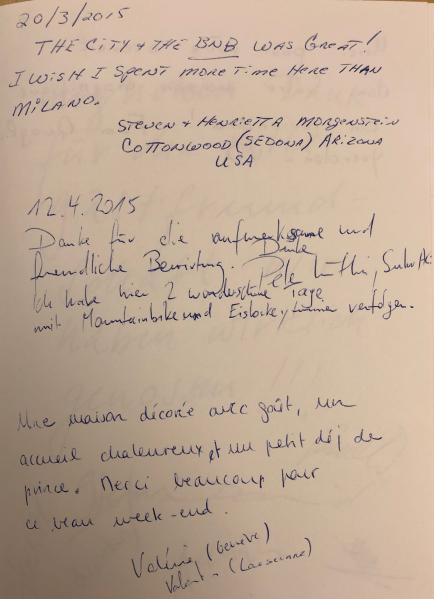 20/3/2015
THE CITY + THE BNB WAS GREAT!
I WISH I SPENT MORE TIME HERE THAN
MILANO.
STEVEN + HENRIETTA MORGENSTEIN
COTTONWOOD (SEDONA) ARIZONA
USA
12.4.2015
Danke für die aufmerksame und
freundliche Bewirtung. Danke
Ich habe hier 2 wunderschöne Tage
mit Mountainbike und Eishockey verfolgen.
Une maison décorée avec goût, un
accueil chaleureux, et un petit déj de
prince. Merci beaucoup pour
ce beau week-end.
Valérie (Genève)
(Lausanne)